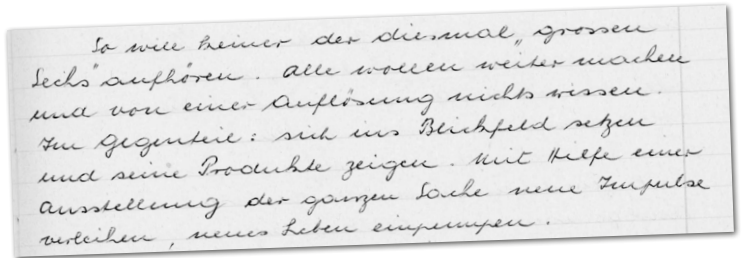 So will keiner der diesmal „grossen
Sechs" aufhören. Alle wollen weiter machen
und von einer Auflösung nichts wissen.
Im Gegenteil: sich ins Blickfeld setzen
und seine Produkte zeigen. Mit Hilfe einer
Ausstellung der ganzen Sache neue Impulse
verleihen, neues Leben einpumpen.